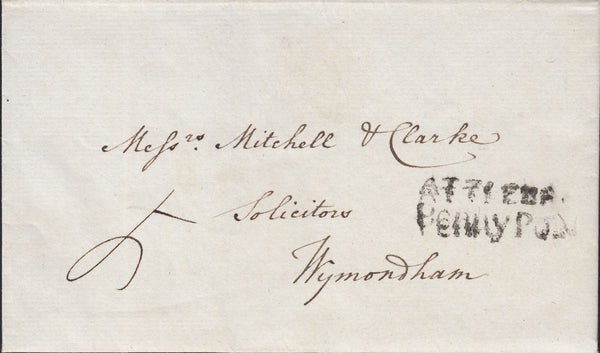 Messrs. Mitchell & Clarke
Solicitors
Wymondham
PENNY POST